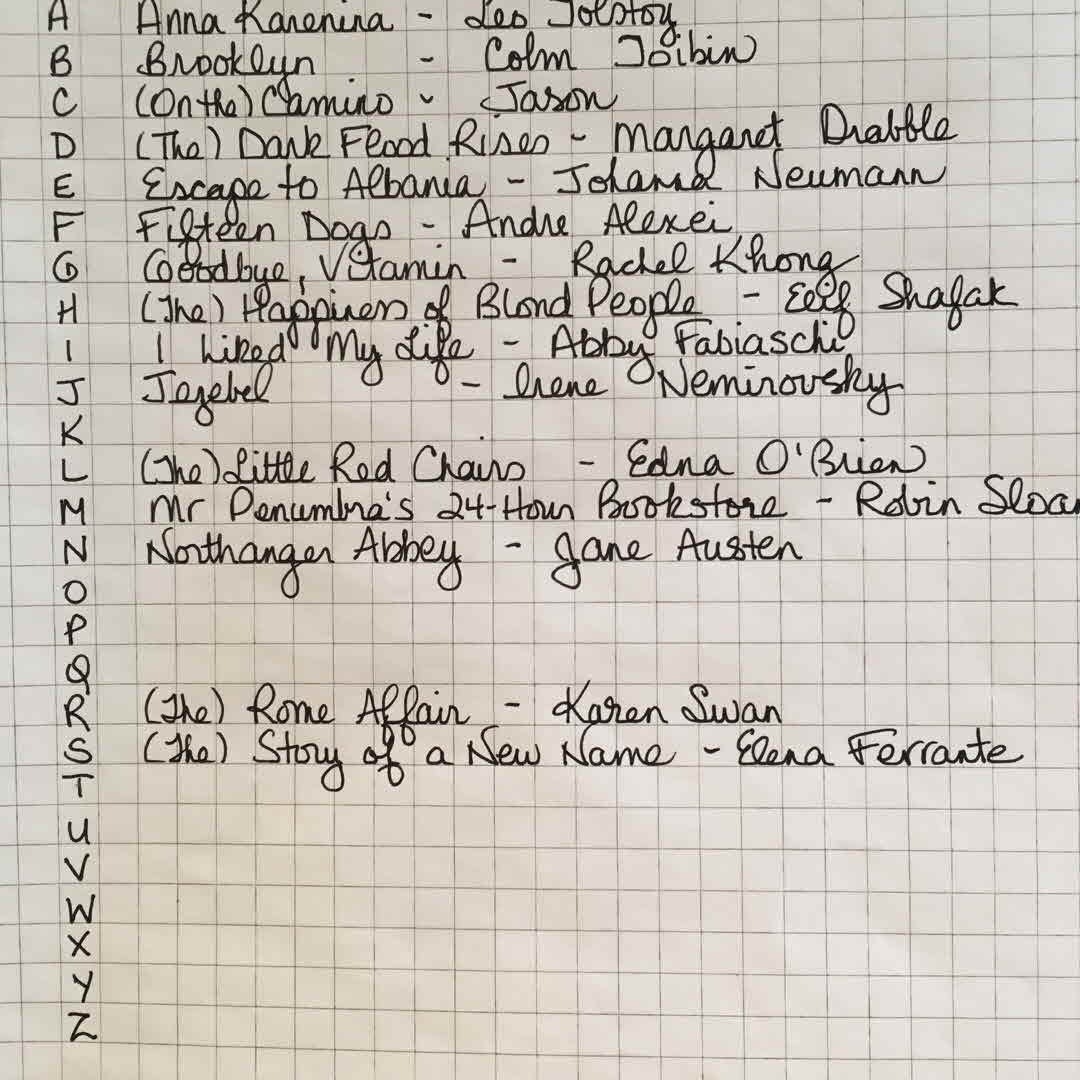 A Anna Karenina - Leo Tolstoy
B Brooklyn - Colm Toibin
C (On the) Camino - Jason
D (The) Dark Flood Rises - Margaret Drabble
E Escape to Albania - Johanna Neumann
F Fifteen Dogs - Andre Alexei
G Goodbye, Vitamin - Rachel Khong
H (The) Happiness of Blond People - Elif Shafak
I I Liked My Life - Abby Fabiaschi
J Jezebel - Irene Nemirovsky
K
L (The) Little Red Chairs - Edna O'Brien
M Mr Penumbra's 24-Hour Bookstore - Robin Sloan
N Northanger Abbey - Jane Austen
O
P
Q
R (The) Rome Affair - Karen Swan
S (The) Story of a New Name - Elena Ferrante
T
U
V
W
X
Y
Z